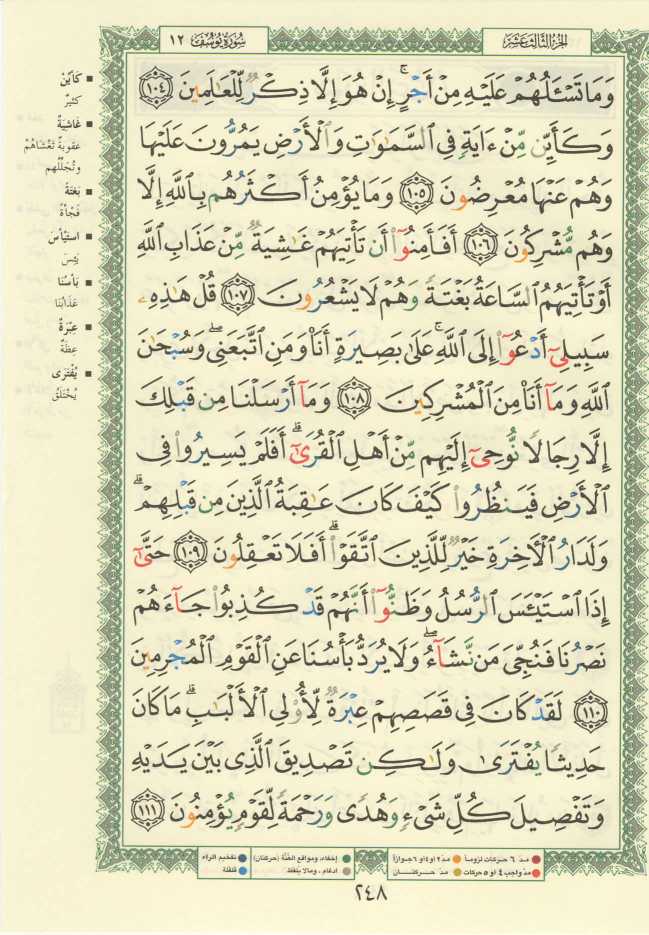 الجزء الثالث عشر
سورة يوسف ١٢
وَمَا تَسْـَٔلُهُمْ عَلَيْهِ مِنْ أَجْرٍ ۚ إِنْ هُوَ إِلَّا ذِكْرٌ لِّلْعَـٰلَمِينَ ١٠٤
وَكَأَيِّن مِّنْ ءَايَةٍ فِى ٱلسَّمَـٰوَٰتِ وَٱلْأَرْضِ يَمُرُّونَ عَلَيْهَا
وَهُمْ عَنْهَا مُعْرِضُونَ ١٠٥ وَمَا يُؤْمِنُ أَكْثَرُهُم بِٱللَّهِ إِلَّا
وَهُم مُّشْرِكُونَ ١٠٦ أَفَأَمِنُوٓا۟ أَن تَأْتِيَهُمْ غَـٰشِيَةٌ مِّنْ عَذَابِ ٱللَّهِ
أَوْ تَأْتِيَهُمُ ٱلسَّاعَةُ بَغْتَةً وَهُمْ لَا يَشْعُرُونَ ١٠٧ قُلْ هَـٰذِهِۦ
سَبِيلِىٓ أَدْعُوٓا۟ إِلَى ٱللَّهِ ۚ عَلَىٰ بَصِيرَةٍ أَنَا۠ وَمَنِ ٱتَّبَعَنِى ۖ وَسُبْحَـٰنَ
ٱللَّهِ وَمَآ أَنَا۠ مِنَ ٱلْمُشْرِكِينَ ١٠٨ وَمَآ أَرْسَلْنَا مِن قَبْلِكَ
إِلَّا رِجَالًا نُّوحِىٓ إِلَيْهِم مِّنْ أَهْلِ ٱلْقُرَىٰٓ ۗ أَفَلَمْ يَسِيرُوا۟ فِى
ٱلْأَرْضِ فَيَنظُرُوا۟ كَيْفَ كَانَ عَـٰقِبَةُ ٱلَّذِينَ مِن قَبْلِهِمْ ۗ
وَلَدَارُ ٱلْـَٔاخِرَةِ خَيْرٌ لِّلَّذِينَ ٱتَّقَوْا۟ ۗ أَفَلَا تَعْقِلُونَ ١٠٩ حَتَّىٰٓ
إِذَا ٱسْتَيْـَٔسَ ٱلرُّسُلُ وَظَنُّوٓا۟ أَنَّهُمْ قَدْ كُذِبُوا۟ جَآءَهُمْ
نَصْرُنَا فَنُجِّىَ مَن نَّشَآءُ ۖ وَلَا يُرَدُّ بَأْسُنَا عَنِ ٱلْقَوْمِ ٱلْمُجْرِمِينَ
١١٠ لَقَدْ كَانَ فِى قَصَصِهِمْ عِبْرَةٌ لِّأُو۟لِى ٱلْأَلْبَـٰبِ ۗ مَا كَانَ
حَدِيثًا يُفْتَرَىٰ وَلَـٰكِن تَصْدِيقَ ٱلَّذِى بَيْنَ يَدَيْهِ
وَتَفْصِيلَ كُلِّ شَىْءٍ وَهُدًى وَرَحْمَةً لِّقَوْمٍ يُؤْمِنُونَ ١١١
كَأَيِّنْ
كَثِيرٌ
غَاشِيَةٌ
عقوبةٌ تَغْشَاهُمْ
وتُجَلِّلُهم
بَغْتَةً
فَجْأَةً
استيأس
يَئِسَ
بَأْسُنَا
عَذَابُنَا
عِبْرَةٌ
عِظَةٌ
يُفْتَرَى
يُخْتَلَقُ
مدّ ٦ حركات لزوماً
مدّ ٢ أو ٤ أو ٦ جوازاً
إخفاء، ومواقع الغُنَّة (حركتان)
تفخيم الراء
مدّ واجب ٤ أو ٥ حركات
مدّ حركتان
ادغام، ومالا يلفظ
قلقلة
٢٤٨